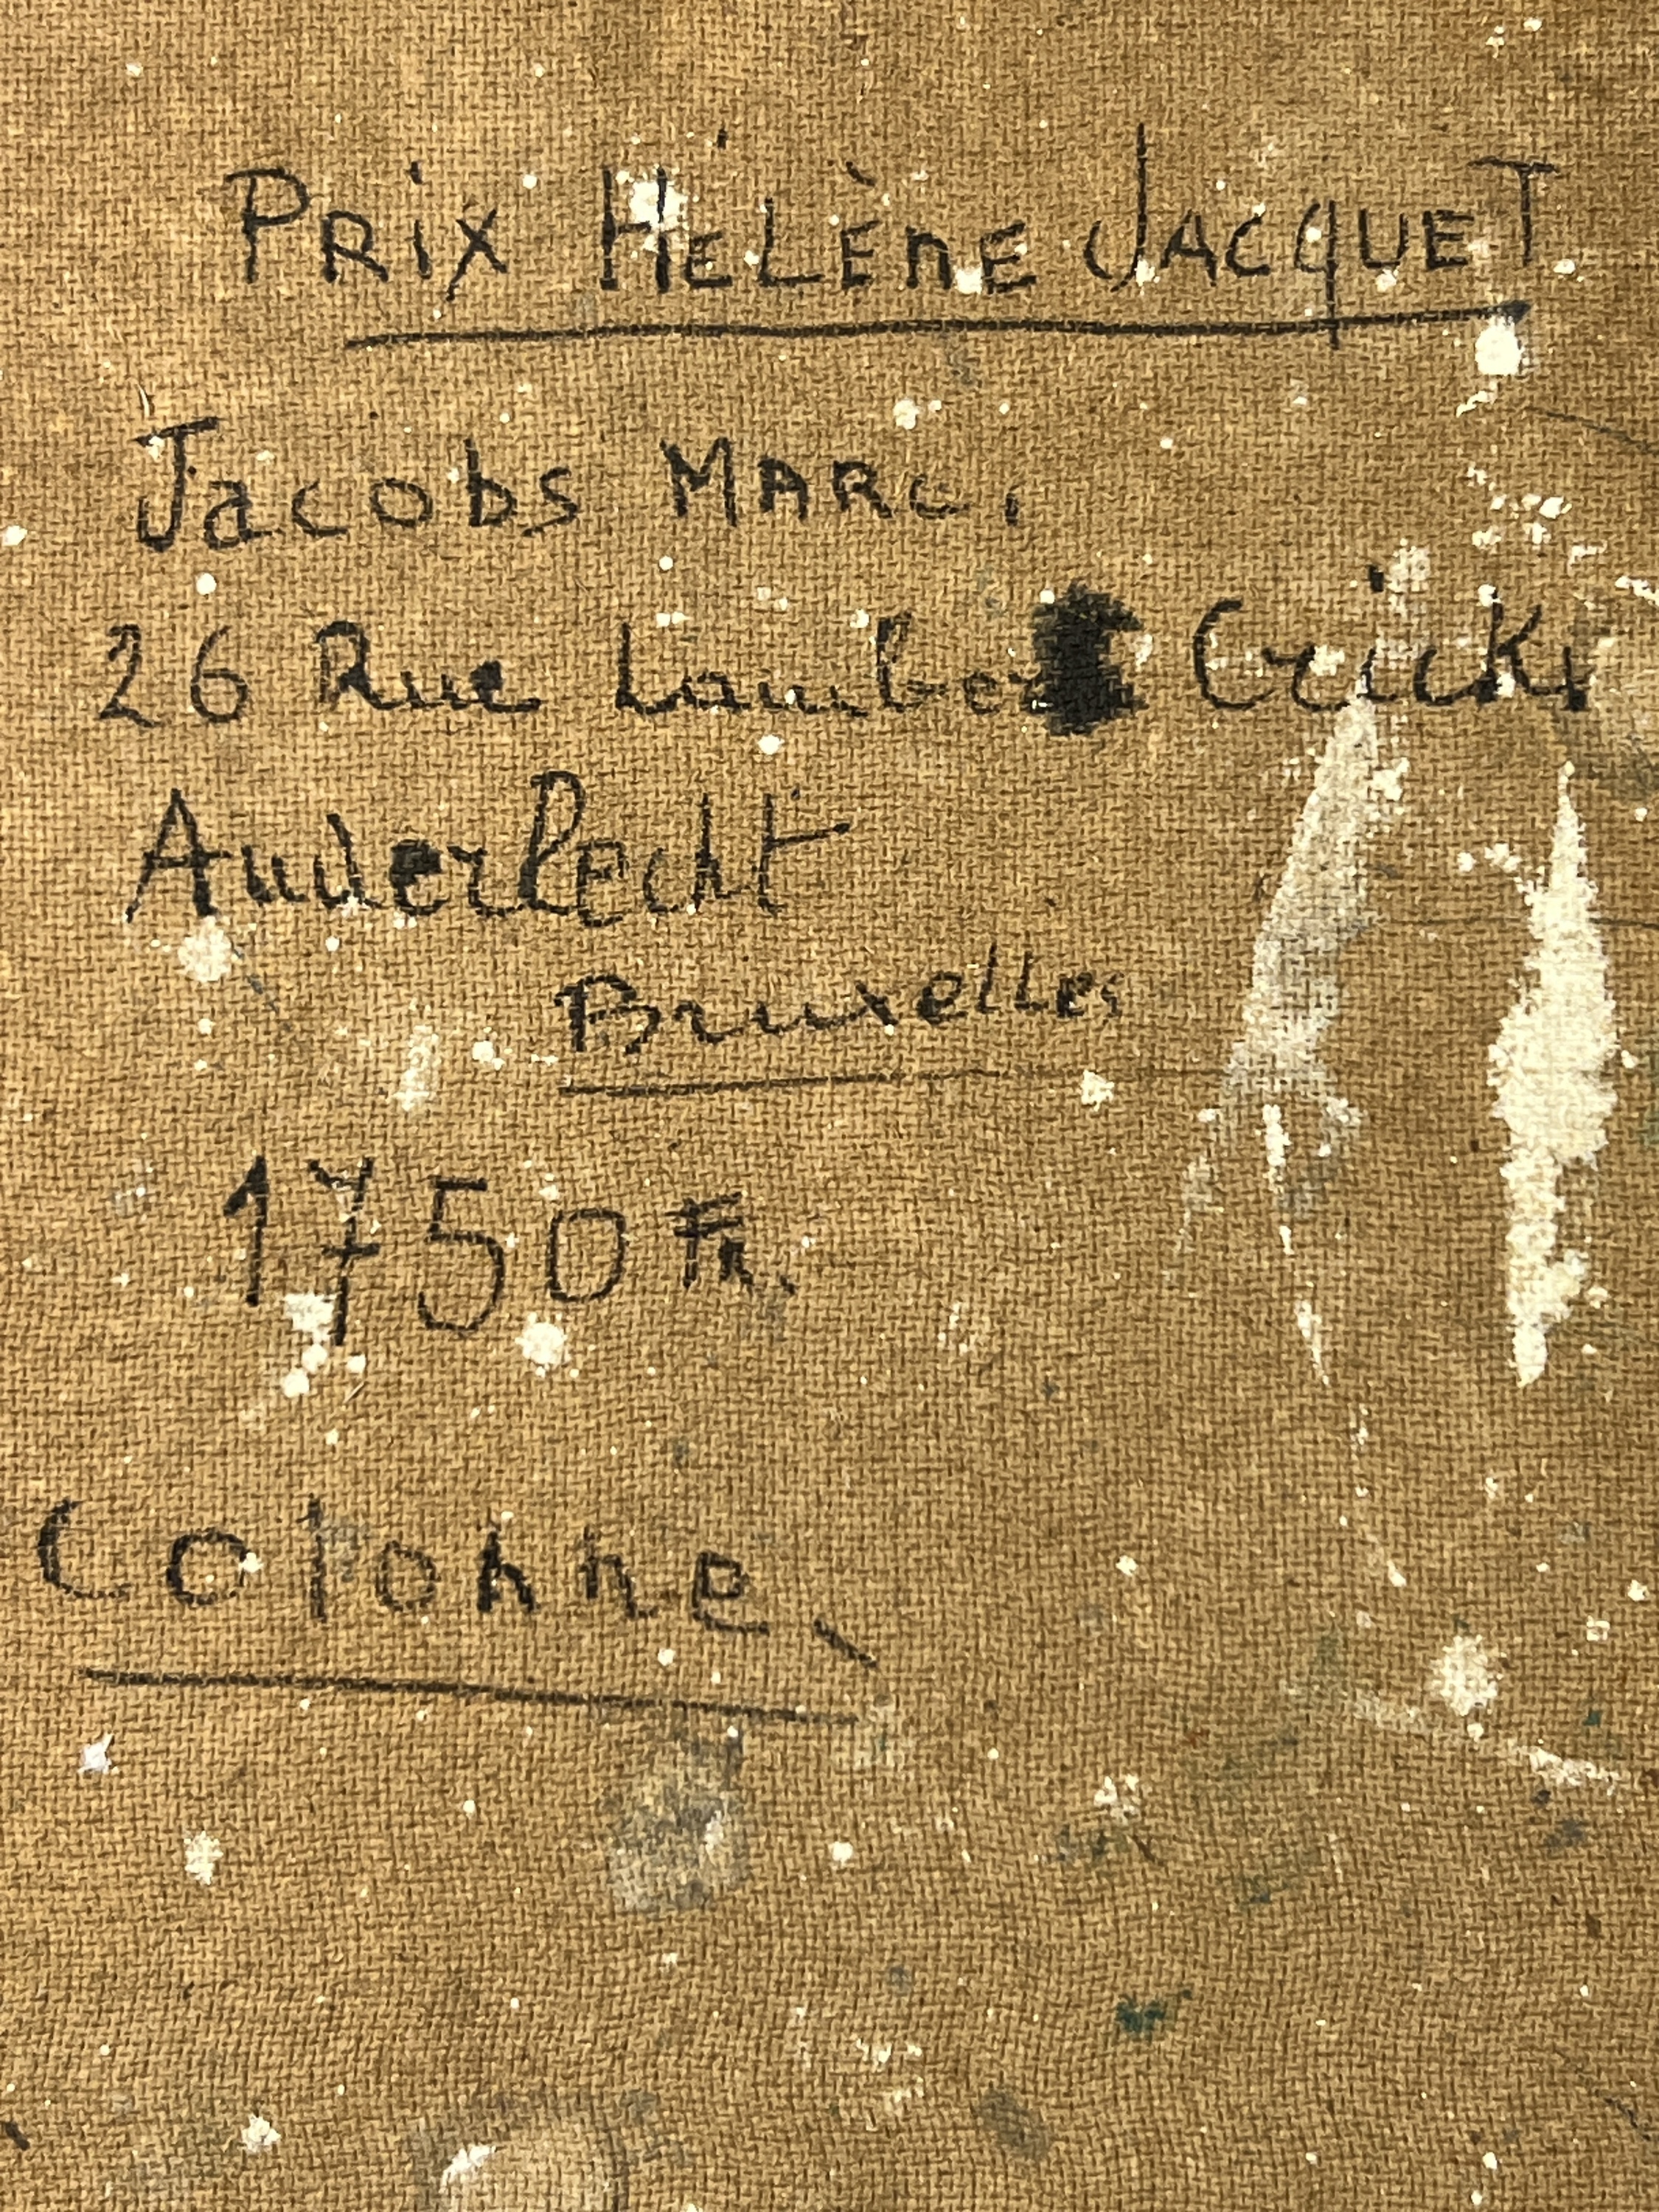 PRiX HÉLÈnE JACQUET
Jacobs MARC.
26 Rue Lambert Crickx
Anderlecht
Bruxelles
1750 Fr.
Colonne